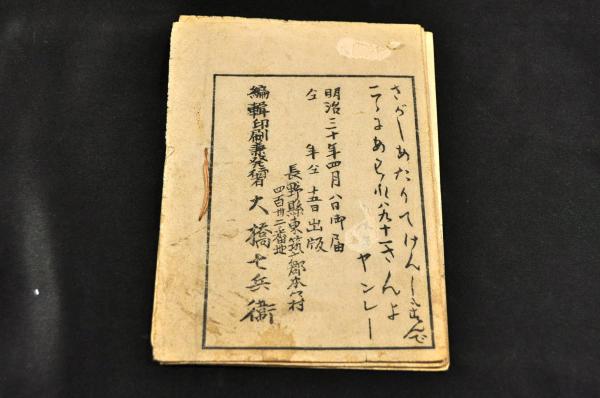 さがしあたりてけんしさんで
こゝにあらハれ九十一きんよ
ヤンレー
明治三十年四月八日御届
仝 年 仝 十五日出版
長野縣東筑摩郡本郷村
四百廿二番地
編輯印刷兼発行者 大橋七兵衛